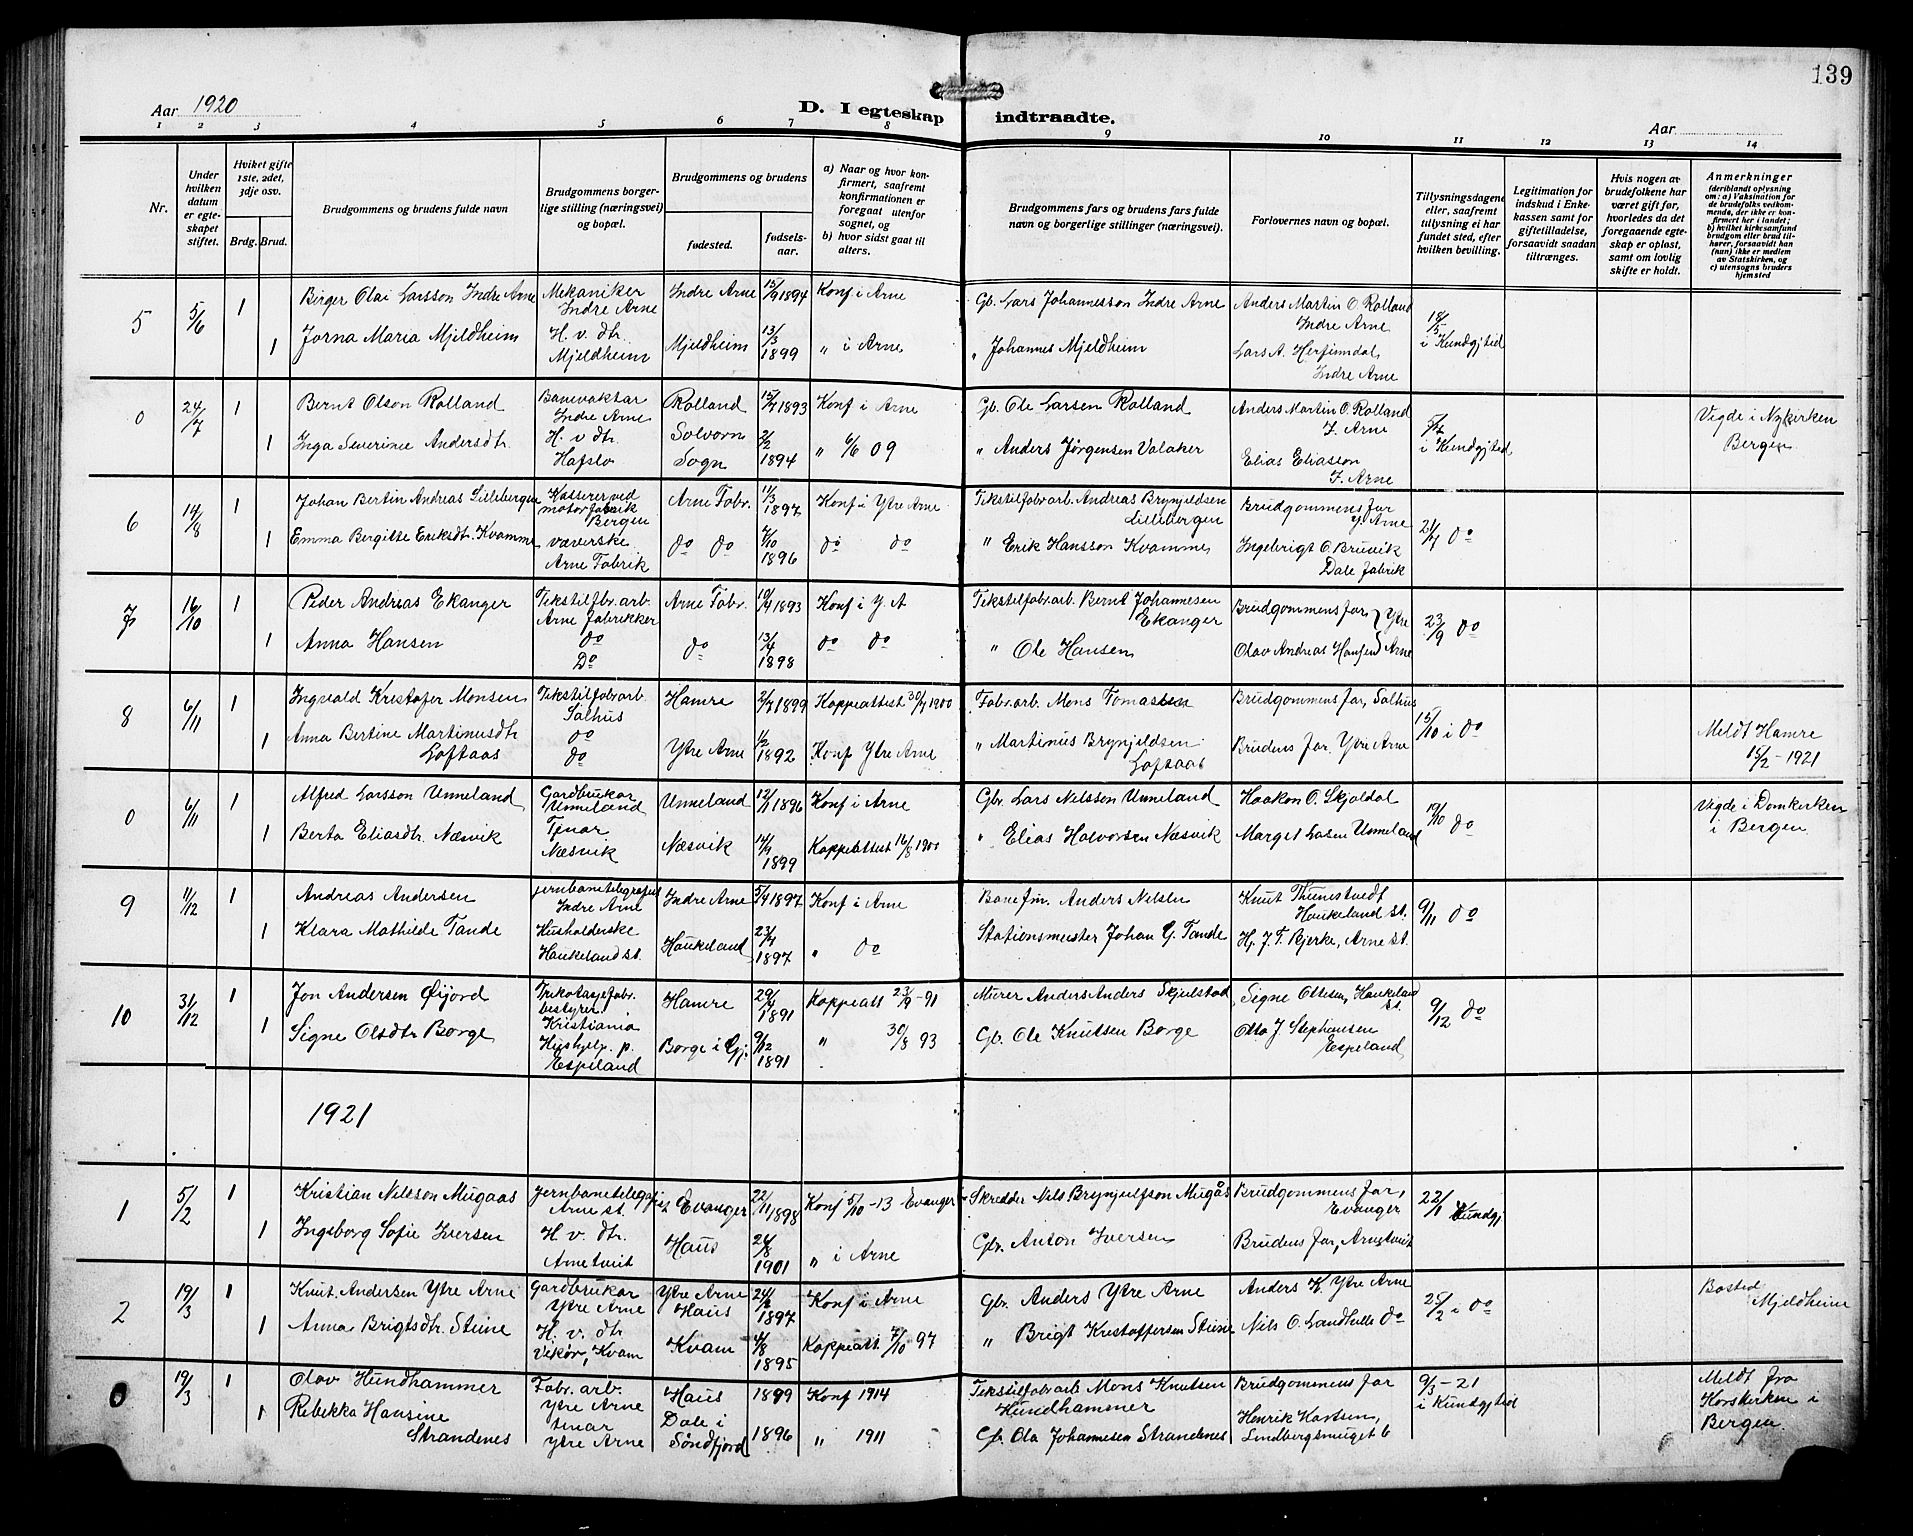 139
Aar 1920
D. I egteskap indtraadte.
Aar
1 2 3 4 5 6 7 8 9 10 11 12 13 14
Nr.
Under hvilken datum er egteskapet stiftet.
Hviket gifte 1ste, 2det, 3dje osv.
Brdg. Brud.
Brudgommens og brudens fulde navn
Brudgommens borgerlige stilling (næringsvei) og bopæl.
Brudgommens og brudens
fødested.
fødselsaar.
a) Naar og hvor konfirmert, saafremt konfirmationen er foregaat utenfor sognet, og
b) hvor sidst gaat til alters.
Brudgommens fars og brudens fars fulde navn og borgerlige stillinger (næringsvei).
Forlovernes navn og bopæl.
Tillysningsdagene eller, saafremt tillysning ei har fundet sted, efter hvilken bevilling.
Legitimation for indskud i Enkekassen samt for giftetilladelse, forsaavidt saadan tiltrænges.
Hvis nogen av brudefolkene har været gift før, hvorledes da det foregaaende egteskap er opløst, samt om lovlig skifte er holdt.
Anmerkninger
(deriblandt oplysning om: a) Vaksination for de brudefolks vedkommende, der ikke er konfirmert her i landet; b) hvilket kirkesamfund brudgom eller brud tilhører, forsaavidt han (hun) ikke er medlem av Statskirken, og c) utensogns bruders hjemsted
5 5/6 1 Birger Olai Larsson Indre Arne Mekaniker Indre Arne Indre Arne 15/9 1894 Konf i Arne Gb. Lars Johannesson Indre Arne Anders Martin O. Rolland Indre Arne 18/5 i Kundgjtid
1 Jorna Maria Mjeldheim H. v. dtr. Mjeldheim Mjeldheim 13/3 1899 " i Arne " Johannes Mjeldheim Lars A. Herfindal, Indre Arne
0 24/7 1 Bernt Olson Rolland Banevaktar Indre Arne Rolland 15/7 1893 Konf i Arne Gb. Ole Larsen Rolland Anders Martin O. Rolland I. Arne i Kundgjtid Vigde i Nykirken Bergen
1 Inga Severine Andersdtr. H. v dtr. Hafslo Solvorn Sogn 2/2 1894 " 6/6 09 " Anders Jørgensen Valaker Elias Eliasson I. Arne
6 14/8 1 Johan Bertin Andreas Lillebergen Kasserer ved motorfabrik Bergen Arne Fabr. 11/3 1897 Konf i Ytre Arne Tekstilfabrarb. Andreas Brynjeldsen Lillebergen Brudgommens far Y. Arne 21/7 do
1 Emma Bergitte Eriksdtr. Kvamme væverske Arne Fabrik do do 7/10 1896 do do " Erik Hansson Kvamme Ingebrigt O. Bruvik Dale fabrik
7 16/10 1 Peder Andreas Ekanger Tekstilfbr. arb. Arne Fabrikker Arne Fabr. 10/4 1893 Konf i Y A Tekstilfabrarb. Bernt Johannesen Ekanger Brudgommens far } Ytre 23/9 do
1 Anna Hansen do Do do 13/4 1898 do do " Ole Hansen Olav Andreas Hansen } Arne
8 6/11 1 Ingvald Kristofer Monsen Tekstilfabrarb. Salhus Hamre 2/7 1899 Koppeattest 30/7 1900 Fabrarb. Mons Tomassen Brudgommens far, Salhus 15/10 i do Meldt Hamre 15/2 - 1921
1 Anna Bertine Martinusdtr Loftaas do do Ytre Arne 1/2 1892 Konf Ytre Arne " Martinus Brynjeldsen Loftaas Brudens far. Ytre Arne
0 6/11 1 Alfred Larsson Unneland Gardbrukar Unneland Unneland 12/11 1896 Konf i Arne Gbr. Lars Nilsson Unneland Haakon O. Skjoldal 19/10 do Vigde i Domkirken i Bergen
1 Berta Eliasdtr. Næsvik Tenar Næsvik Næsvik 14/9 1899 Koppeattest 16/8 1900 " Elias Halvorsen Næsvik Margit Unneland
9 11/12 1 Andreas Andersen Jernbanetelegrafist Indre Arne Indre Arne 5/4 1897 Konf i Arne Banefm. Anders Nilsen Knut Thunestvedt Haukeland st. 9/11 do
1 Klara Mathilde Tande Husholderske Haukeland st. Haukeland 23/4 1897 " do Stationsmester Johan G. Tande Hj. J. F. Bjerke, Arne st.
10 31/12 1 Jon Andersen Øijord Trikotasjefabr. bestyrer, Kristiania Hamre 29/4 1891 Koppeatt 23/9 - 91 Murer Anders Anders Skjelstad Signe Ottesen, Haukeland st. 9/12 do
1 Signe Olsdtr Børge Hushjelp. p. Espeland Børge i Gj. 9/12 1891 " 30/8 93 Gb. Ole Knutsen Børge Otto J Stephansen Espeland
1921
1 5/2 1 Kristian Nilsson Mugaas Jernbanetelegrafist Arne st. Evanger 22/11 1898 Konf 5/10 - 13 Evanger Skredder Nils Brynjulfson Mugås Brudgommens far, Evanger 22/1 Kundgj
1 Ingeborg Sofie Iversen H. v. dtr. Arnetveit Haus 24/8 1901 " i Arne Gbr. Anton Iversen Brudens far, Arnetveit
2 19/3 1 Knut. Andersen Ytre Arne Gardbrukar Ytre Arne Ytre Arne Haus 24/2 1897 Konf i Arne Gbr. Anders Ytre Arne Anders K. Ytre Arne 25/2 i do Bosted Mjeldheim
1 Anna Brigtsdtr. Steine H. v. dtr Vikør, Kvam Kvam 4/8 1895 Koppeatt. 7/10 97 " Brigt Kristoffersen Steine Nils O. Landhulle do
0 19/3 1 Olav Hundhammer Fabr. arb. Ytre Arne Haus 1899 Konf 1914 Tekstilfabrarb Mons Knutsen Hundhammer Brudgommens far 9/3 - 21 i Kundgjtid Meldt fra Korskirken i Bergen
1 Rebekka Hansine Strandenes tenar Ytre Arne Dale i Søndfjord 1896 " 1911 Gb. Ola Johannesen Strandenes Henrik Karlsen, Lindbergsmuget 6